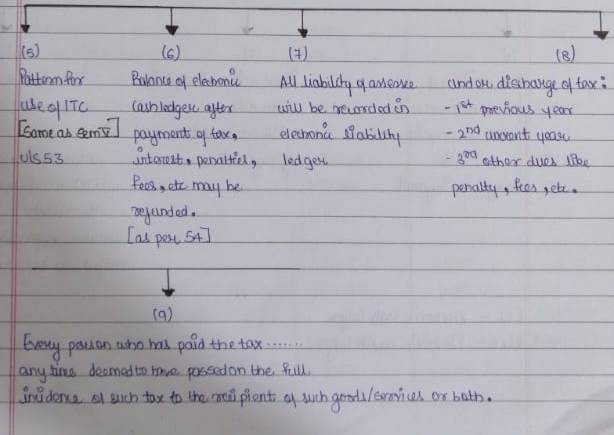 (5)
Pattern for
use of ITC
[Same as Sem V]
u/s 53
(6)
Balance of electronic
cash ledger after
payment of tax,
interest, penalties,
fees, etc may be
refunded.
[as per 54]
(7)
All liability of assessee
will be recorded in
electronic liability
ledger
(8)
under discharge of tax:
- 1st previous year
- 2nd current year
- 3rd other dues like
penalty, fees, etc.
(9)
Every person who has paid the tax .......
any time deemed to have passed on the full
incidence of such tax to the recipient of such goods/services or both.